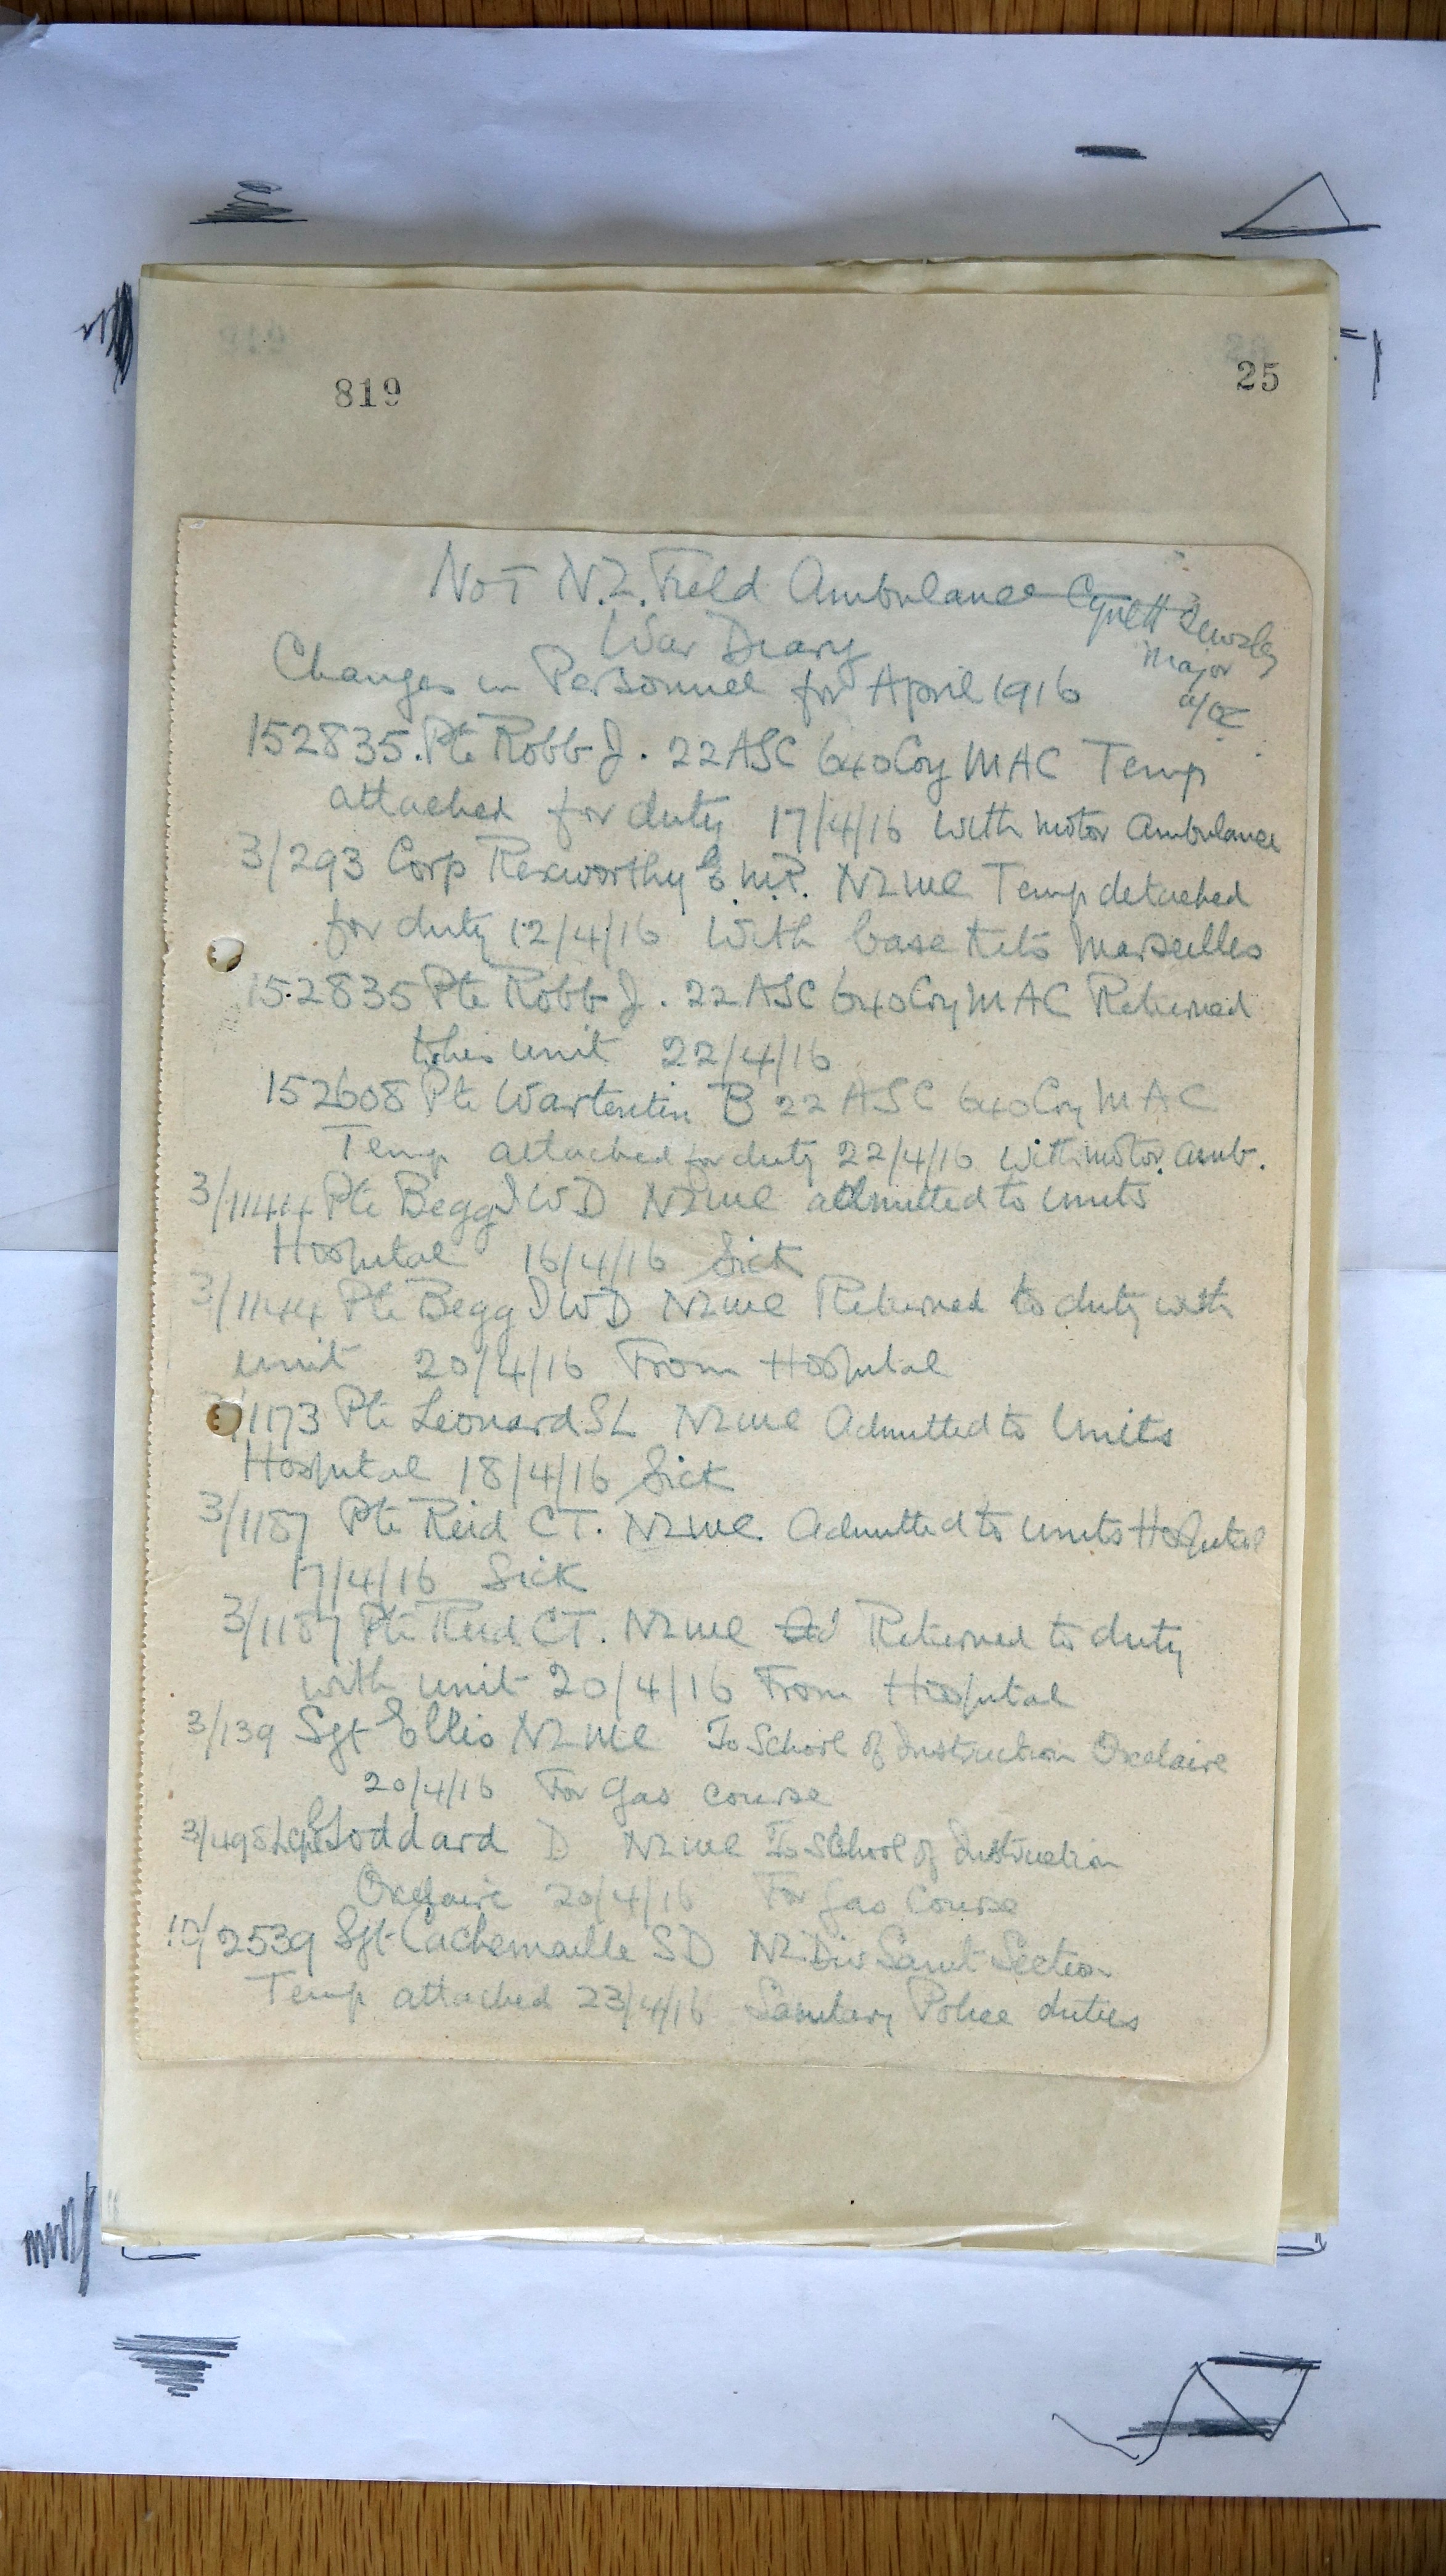 819 25
No 1 N.Z. Field Ambulance
War Diary
Major
a/OC
Changes in Personnel for April 1916
152835. Pte Robb J. 22 ASC 640 Coy MAC Temp
attached for duty 17/4/16 with motor Ambulance
3/293 Corp Rexworthy E.M.R. NZMC Temp detached
for duty 12/4/16 With base kits Marseilles
152835 Pte Robb J. 22 ASC 640 Coy MAC Returned
to his unit 22/4/16
152608 Pte Wartentin B 22 ASC 640 Coy MAC
Temp attached for duty 22/4/16 with motor amb.
3/1144 Pte Begg J W D NZMC admitted to Units
Hospital 16/4/16 Sick
3/1144 Pte Begg J W D NZMC Returned to duty with
unit 20/4/16 From Hospital
3/1173 Pte Leonard S L NZMC Admitted to Units
Hospital 18/4/16 Sick
3/1187 Pte Reid C T. NZMC. Admitted to units Hospital
17/4/16 Sick
3/1187 Pte Reid C T. NZMC Ad Returned to duty
with unit 20/4/16 From Hospital
3/139 Sgt Ellis NZMC To School of Instruction Oxelaire
20/4/16 For Gas course
3/498 Goddard D NZMC To School of Instruction
Oxelaire 20/4/16 For Gas Course
10/2539 Sgt Cachemaille S D NZ Div Sanit Section
Temp attached 23/4/16 Sanitary Police duties